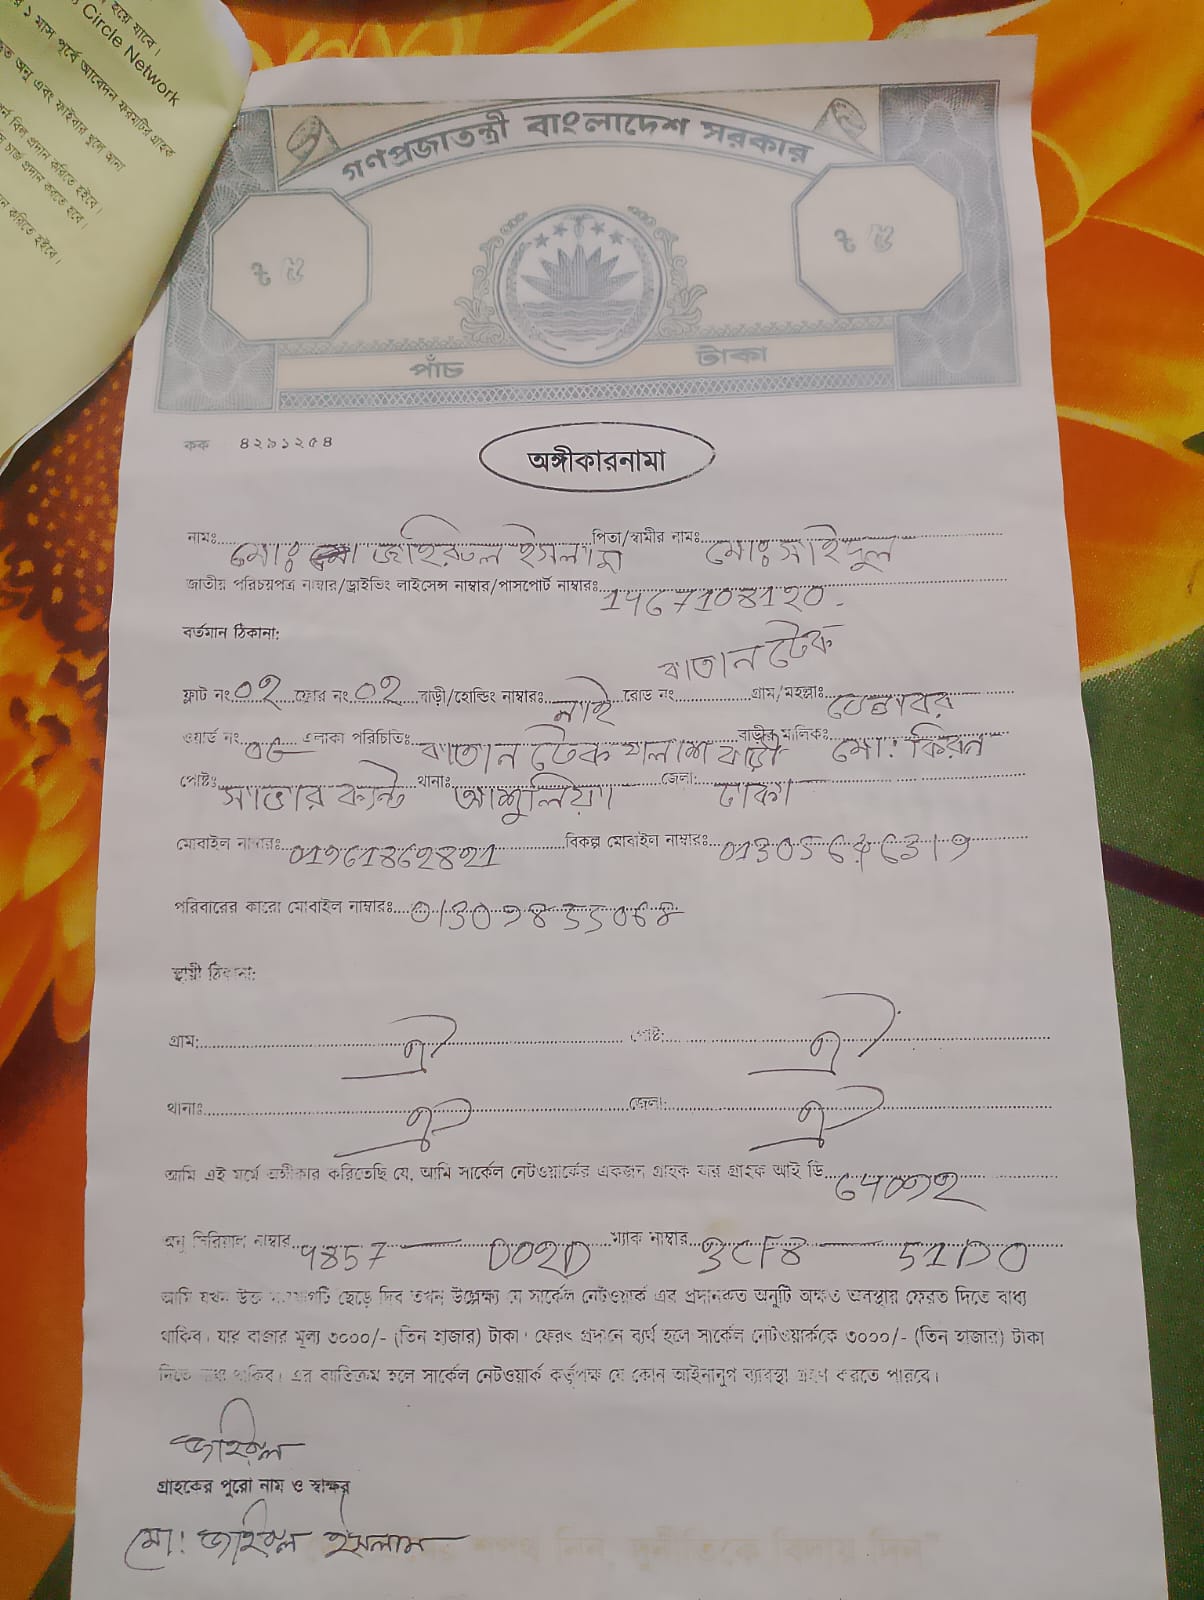 হয়ে যাবে।
Circle Network
১ মাস পূর্বে আবেদন ফরমটির গ্রাহক
অনু এবং ফাইবার মূলে আনা
বিল প্রদান করিতে হইবে।
চার্জ প্রদান করতে হবে।
করিতে হইবে।
গণপ্রজাতন্ত্রী বাংলাদেশ সরকার
৳ ৫ ৳ ৫
পাঁচ টাকা
কক ৪২৯১২৫৪
অঙ্গীকারনামা
নামঃ মোঃ জহিরুল ইসলাম পিতা/স্বামীর নামঃ মোঃ সাইদুল
জাতীয় পরিচয়পত্র নাম্বার/ড্রাইভিং লাইসেন্স নাম্বার/পাসপোর্ট নাম্বারঃ
বর্তমান ঠিকানা:
বাতান টেক
ফ্লাট নং ০২ ফ্লোর নং ০২ বাড়ী/হোল্ডিং নাম্বারঃ নাই রোড নং গ্রাম/মহল্লাঃ
ওয়ার্ড নং ০৬ এলাকা পরিচিতিঃ বাতান টেক পলাশ বাড়ী বাড়ীর মালিকঃ মো: কিরন
পোষ্টঃ সাভার ক্যন্ট থানাঃ আশুলিয়া জেলা: ঢাকা
মোবাইল নাম্বারঃ বিকল্প মোবাইল নাম্বারঃ
পরিবারের কারো মোবাইল নাম্বারঃ
স্থায়ী ঠিকানা:
গ্রাম: ঐ পোষ্ট: ঐ
থানাঃ ঐ জেলা: ঐ
আমি এই মর্মে অঙ্গীকার করিতেছি যে, আমি সার্কেল নেটওয়ার্কের একজন গ্রাহক যার গ্রাহক আই ডি
অনু সিরিয়াল নাম্বার ম্যাক নাম্বার 3CF8 — 51D0
আমি যখন উক্ত ছেড়ে দিব তখন উল্লেক্ষ্য যে সার্কেল নেটওয়ার্ক এর প্রদানকৃত অনুটি অক্ষত অবস্থায় ফেরত দিতে বাধ্য
থাকিব। যার বাজার মূল্য ৩০০০/- (তিন হাজার) টাকা। ফেরৎ প্রদানে ব্যর্থ হলে সার্কেল নেটওয়ার্ককে ৩০০০/- (তিন হাজার) টাকা
দিতে বাধ্য থাকিব। এর ব্যতিক্রম হলে সার্কেল নেটওয়ার্ক কর্তৃপক্ষ যে কোন আইনানুগ ব্যাবস্থা গ্রহণ করতে পারবে।
জহিরুল
গ্রাহকের পুরো নাম ও স্বাক্ষর
মো: জহিরুল ইসলাম